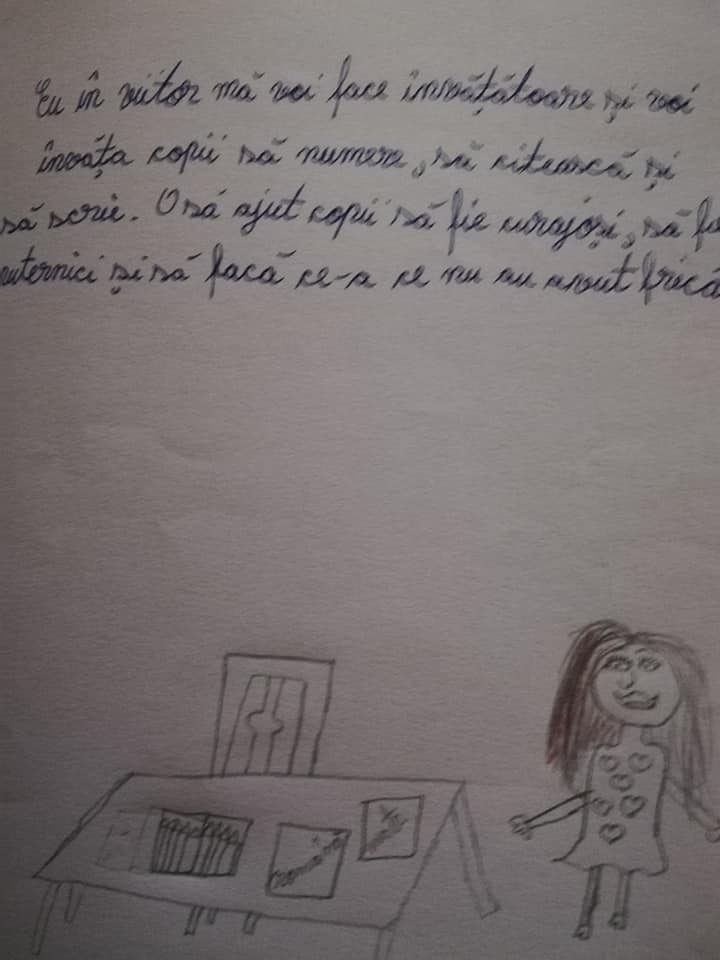 Eu în viitor mă voi face învățătoare și voi
învăța copii să numere, să citească și
să scrie. O să ajut copii să fie curajoși, să fa
puternici și să facă ce-a ce nu au avut frică